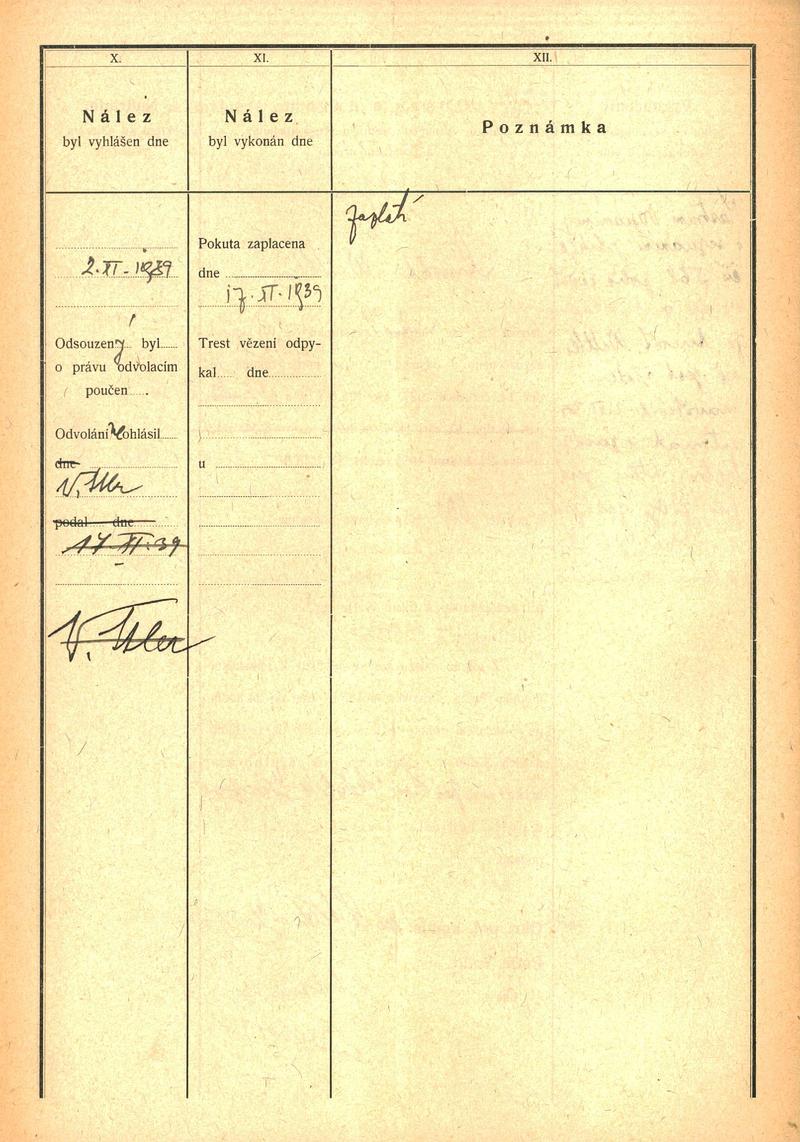 X.
Nález
byl vyhlášen dne
2. XI - 1939
Odsouzený byl
o právu odvolacím
poučen
Odvolání neohlásil
dne
podal dne
17 XI. 39
XI.
Nález
byl vykonán dne
Pokuta zaplacena
dne
17. XI. 1939
Trest vězení odpy-
kal dne
u
XII.
Poznámka
zaplatí